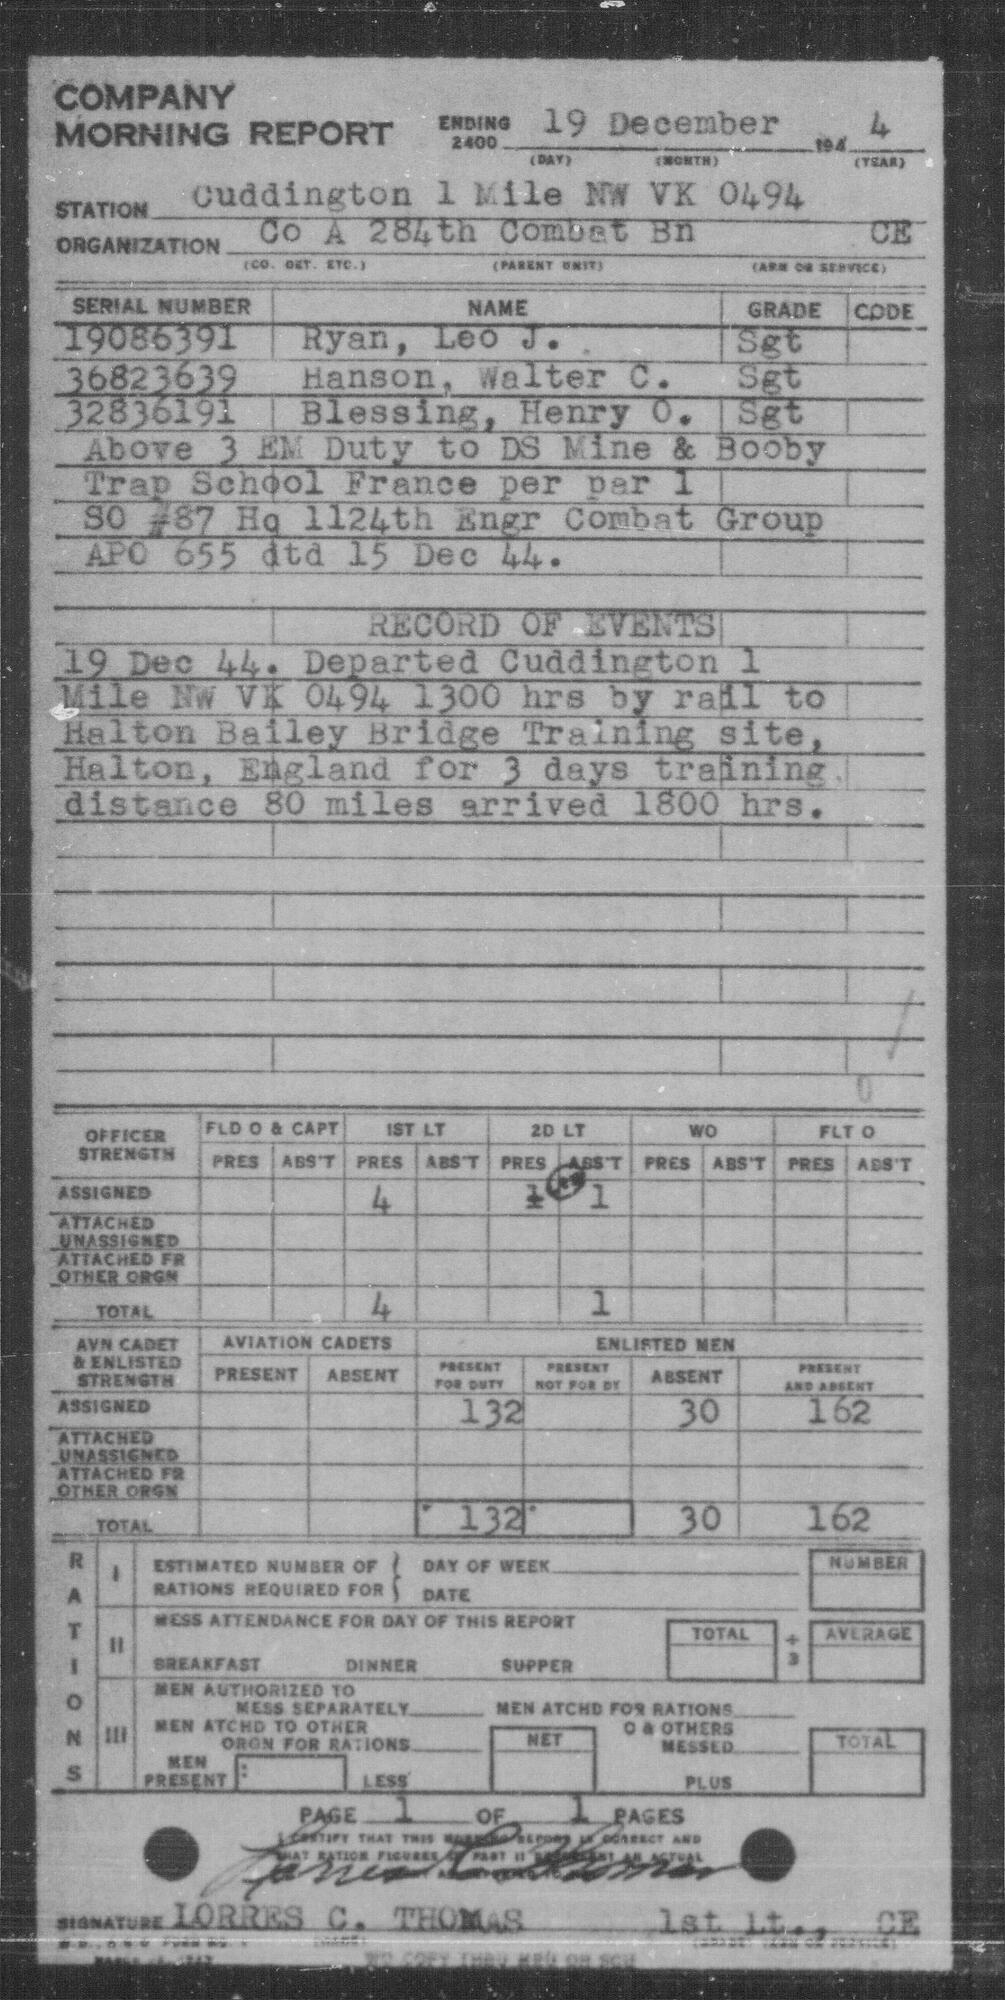 COMPANY
MORNING REPORT ENDING 2400 19 December 194 4
(DAY) (MONTH) (YEAR)
STATION Cuddington 1 Mile NW VK 0494
ORGANIZATION Co A 284th Combat Bn CE
(CO. DET. ETC.) (PARENT UNIT) (ARM OR SERVICE)
SERIAL NUMBER NAME GRADE CODE
19086391 Ryan, Leo J. Sgt
36823639 Hanson, Walter C. Sgt
32836191 Blessing, Henry O. Sgt
Above 3 EM Duty to DS Mine & Booby
Trap School France per par 1
SO #87 Hq 1124th Engr Combat Group
APO 655 dtd 15 Dec 44.
RECORD OF EVENTS
19 Dec 44. Departed Cuddington 1
Mile NW VK 0494 1300 hrs by rail to
Halton Bailey Bridge Training site,
Halton, England for 3 days training,
distance 80 miles arrived 1800 hrs.
0
OFFICER STRENGTH FLD O & CAPT 1ST LT 2D LT WO FLT O
PRES ABS'T PRES ABS'T PRES ABS'T PRES ABS'T PRES ABS'T
ASSIGNED 4 1 1
ATTACHED UNASSIGNED
ATTACHED FR OTHER ORGN
TOTAL 4 1
AVN CADET & ENLISTED STRENGTH AVIATION CADETS ENLISTED MEN
PRESENT ABSENT PRESENT FOR DUTY PRESENT NOT FOR DY ABSENT PRESENT AND ABSENT
ASSIGNED 132 30 162
ATTACHED UNASSIGNED
ATTACHED FR OTHER ORGN
TOTAL 132 30 162
RATIONS
I ESTIMATED NUMBER OF RATIONS REQUIRED FOR { DAY OF WEEK DATE NUMBER
II MESS ATTENDANCE FOR DAY OF THIS REPORT
BREAKFAST DINNER SUPPER TOTAL ÷ 3 AVERAGE
III MEN AUTHORIZED TO MESS SEPARATELY MEN ATCHD FOR RATIONS
MEN ATCHD TO OTHER ORGN FOR RATIONS NET O & OTHERS MESSED TOTAL
MEN PRESENT : LESS PLUS
PAGE 1 OF 1 PAGES
I CERTIFY THAT THIS MORNING REPORT IS CORRECT AND
THAT RATION FIGURES IN PART II REPRESENT AN ACTUAL
Lorres C. Thomas
SIGNATURE LORRES C. THOMAS 1st Lt., CE